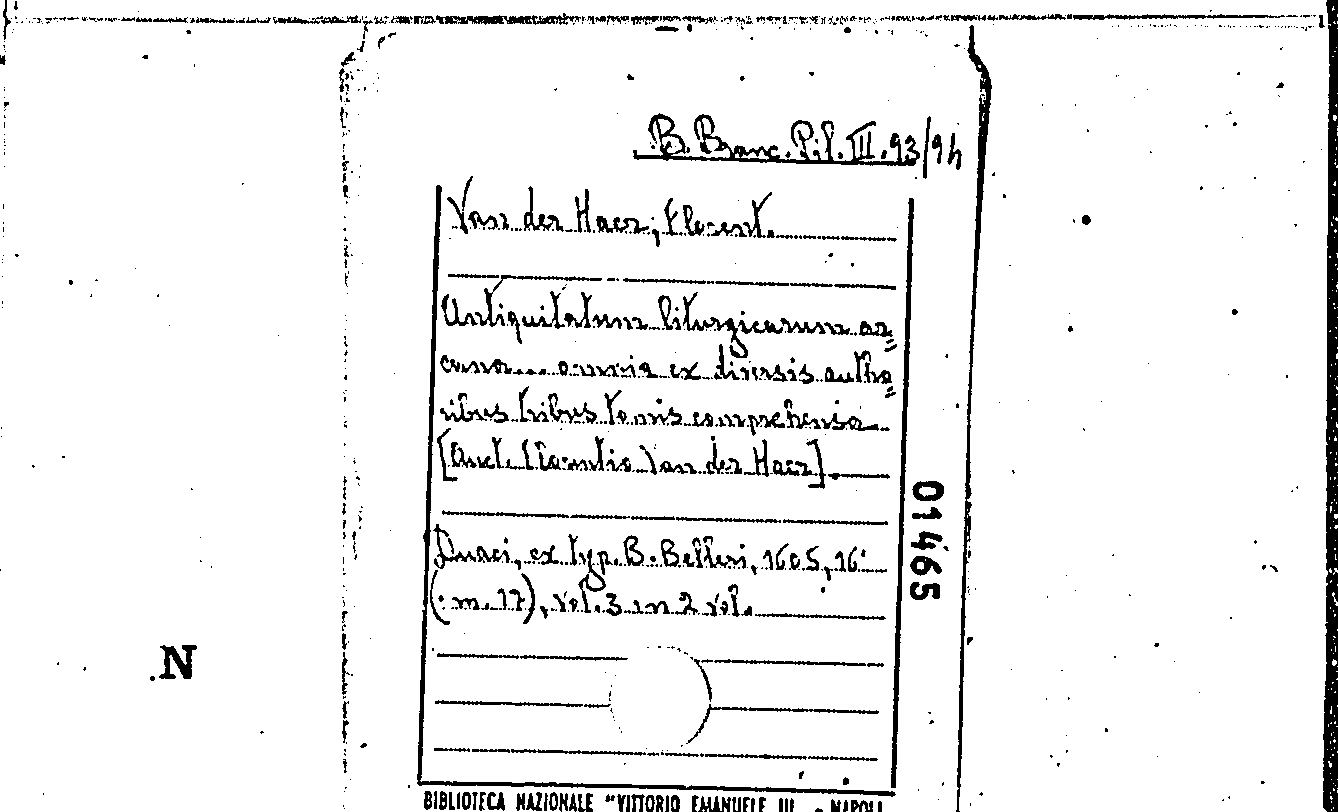 B. Branc. Pil. III. 93/94
Van der Haer, Florent.
Antiquitatum liturgicarum ar=
cana... omnia ex diversis autho=
ribus tribus tomis comprehensa
[Auct. Florentio Van der Haer].
Duaci, ex typ. B. Belleri, 1605, 16°
(m. 17), vol. 3 in 2 vol.
01465
N
BIBLIOTECA NAZIONALE "VITTORIO EMANUELE III - NAPOLI